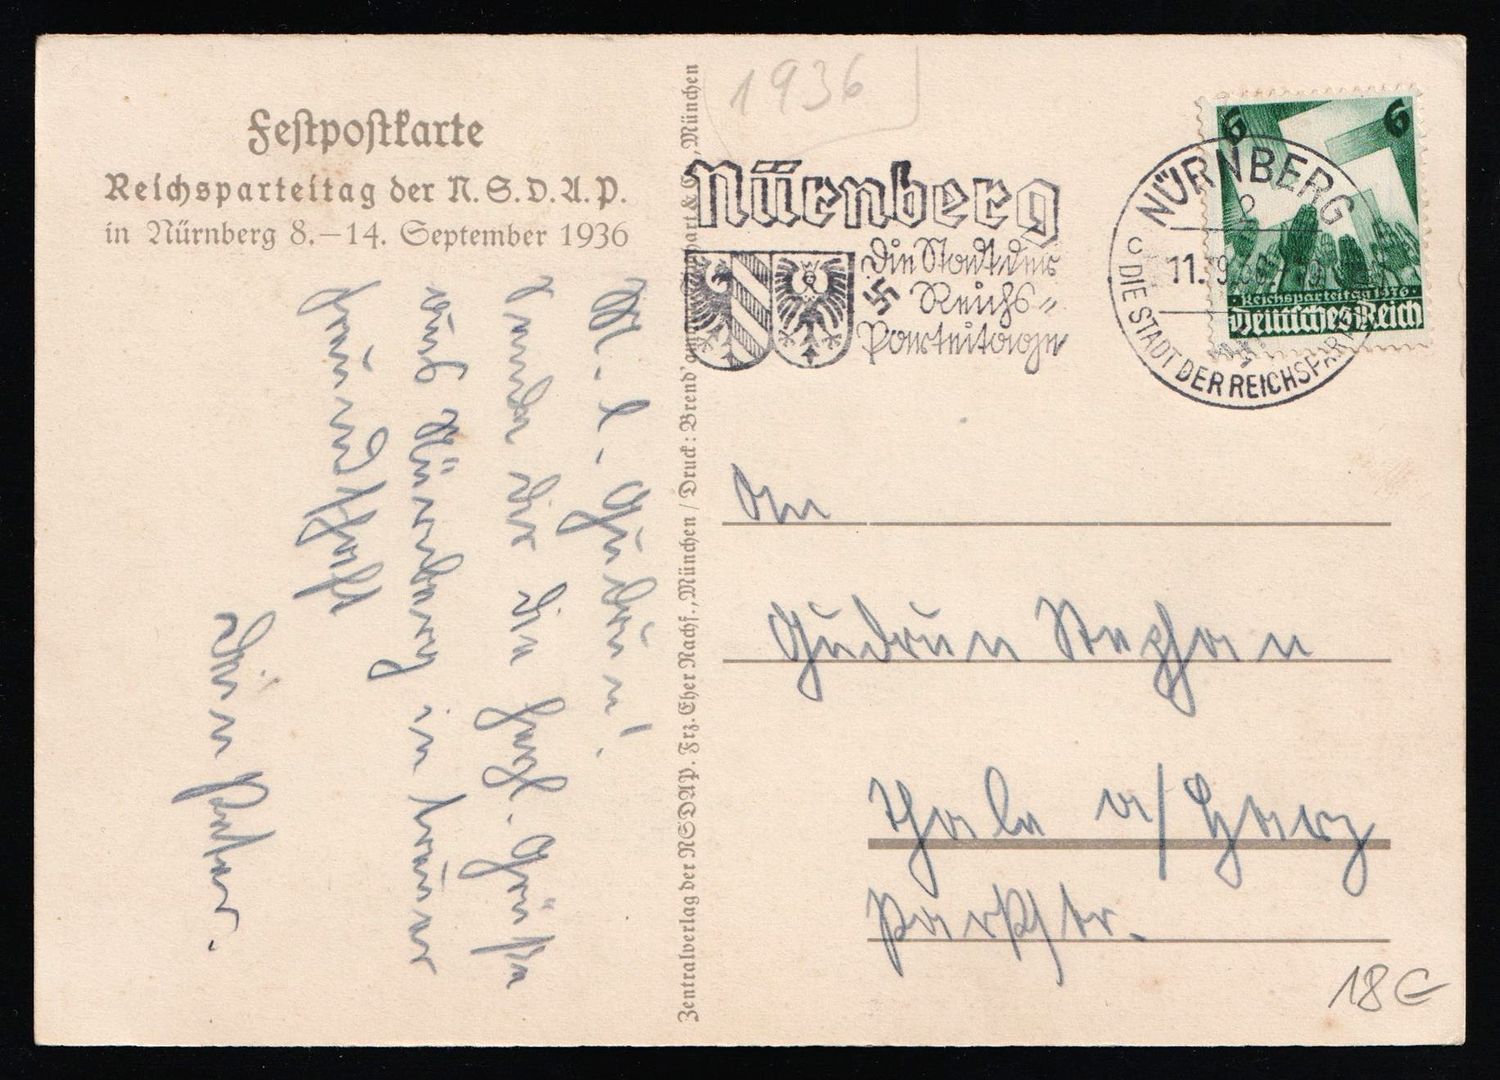 Festpostkarte
Reichsparteitag der N.S.D.A.P.
in Nürnberg 8.–14. September 1936
M. l. Gudrun!
sendet dir die herzl. Grüße
aus Nürnberg in treuer
Freundschaft
Dein Peter.
Zentralverlag der NSDAP. Frz. Eher Nachf., München / Druck: Brend'amour, Simhart & Co., München
1936
Nürnberg
Die Stadt der
Reichs-
Parteitage
NÜRNBERG
2
11.9.
DIE STADT DER REICHSPAR
6 6
Reichsparteitag 1936
Deutsches Reich
An
Gudrun Stephan
Thale a/Harz
Parkstr.
18 €